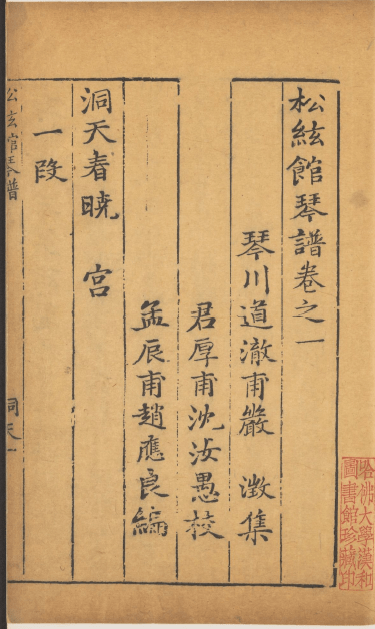 松絃館琴譜卷之一
琴川道澈甫嚴 澂集
君厚甫沈汝愚校
孟辰甫趙應良編
洞天春曉 宮
一段
松絃館琴譜
洞天一
哈佛大學漢和
圖書館珍藏印